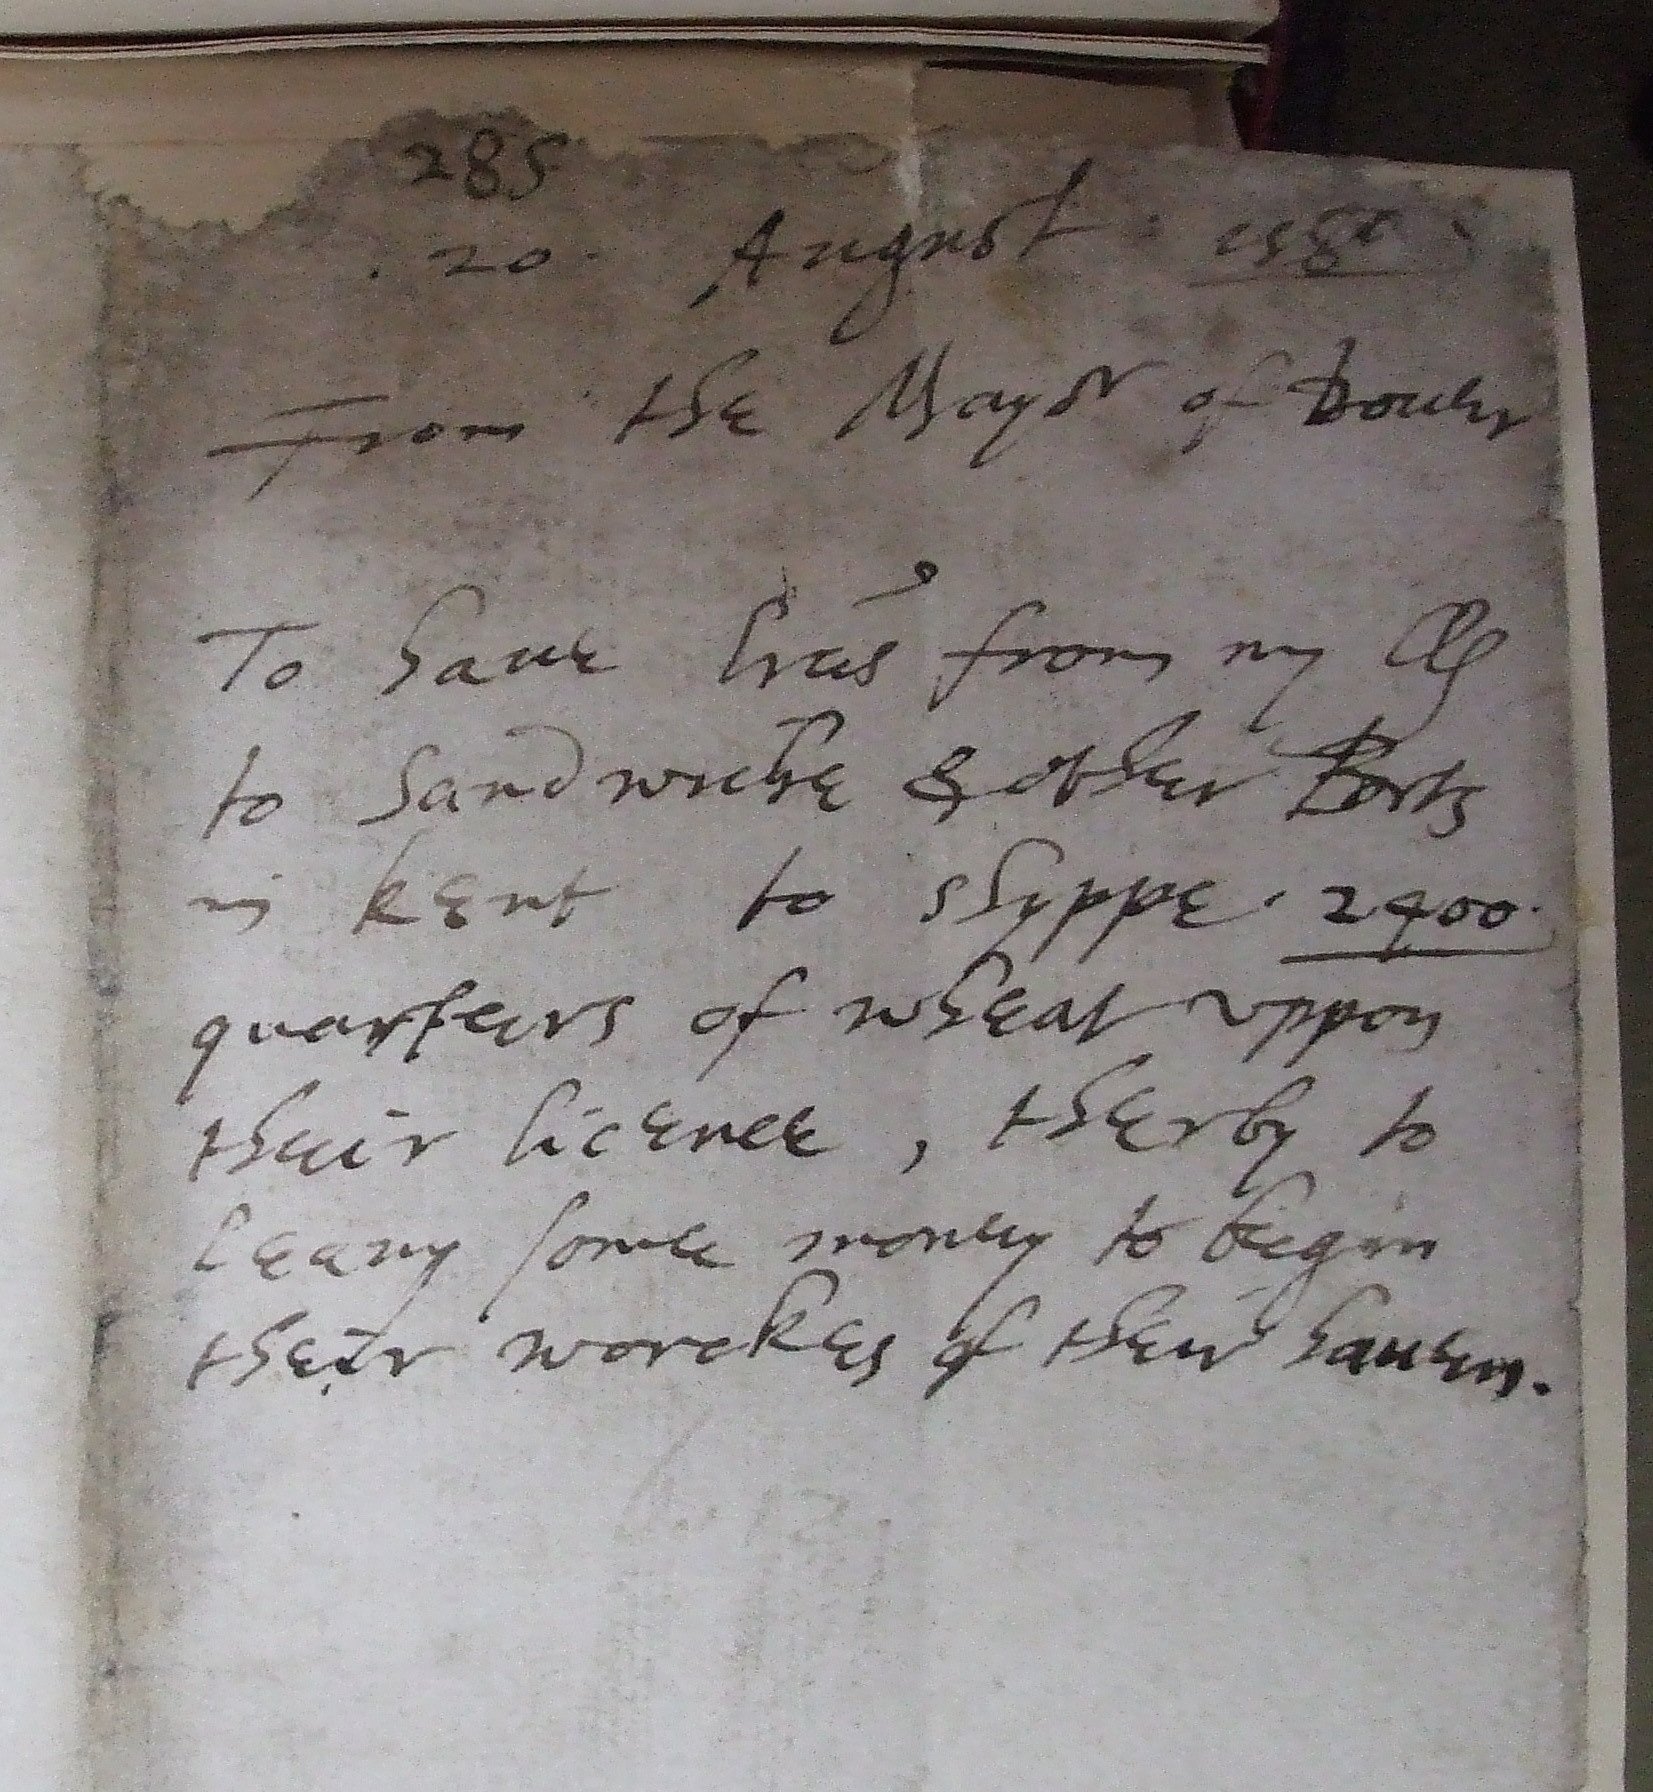 285
. 20 . August : 1580
From the Mayor of Douer
To haue lres from my LL
to Sandwiche & other Ports
in kent to shyppe . 2400 .
quarters of wheat vppon
their licence , therby to
leavy some money to begin
their worckes of their hauen.